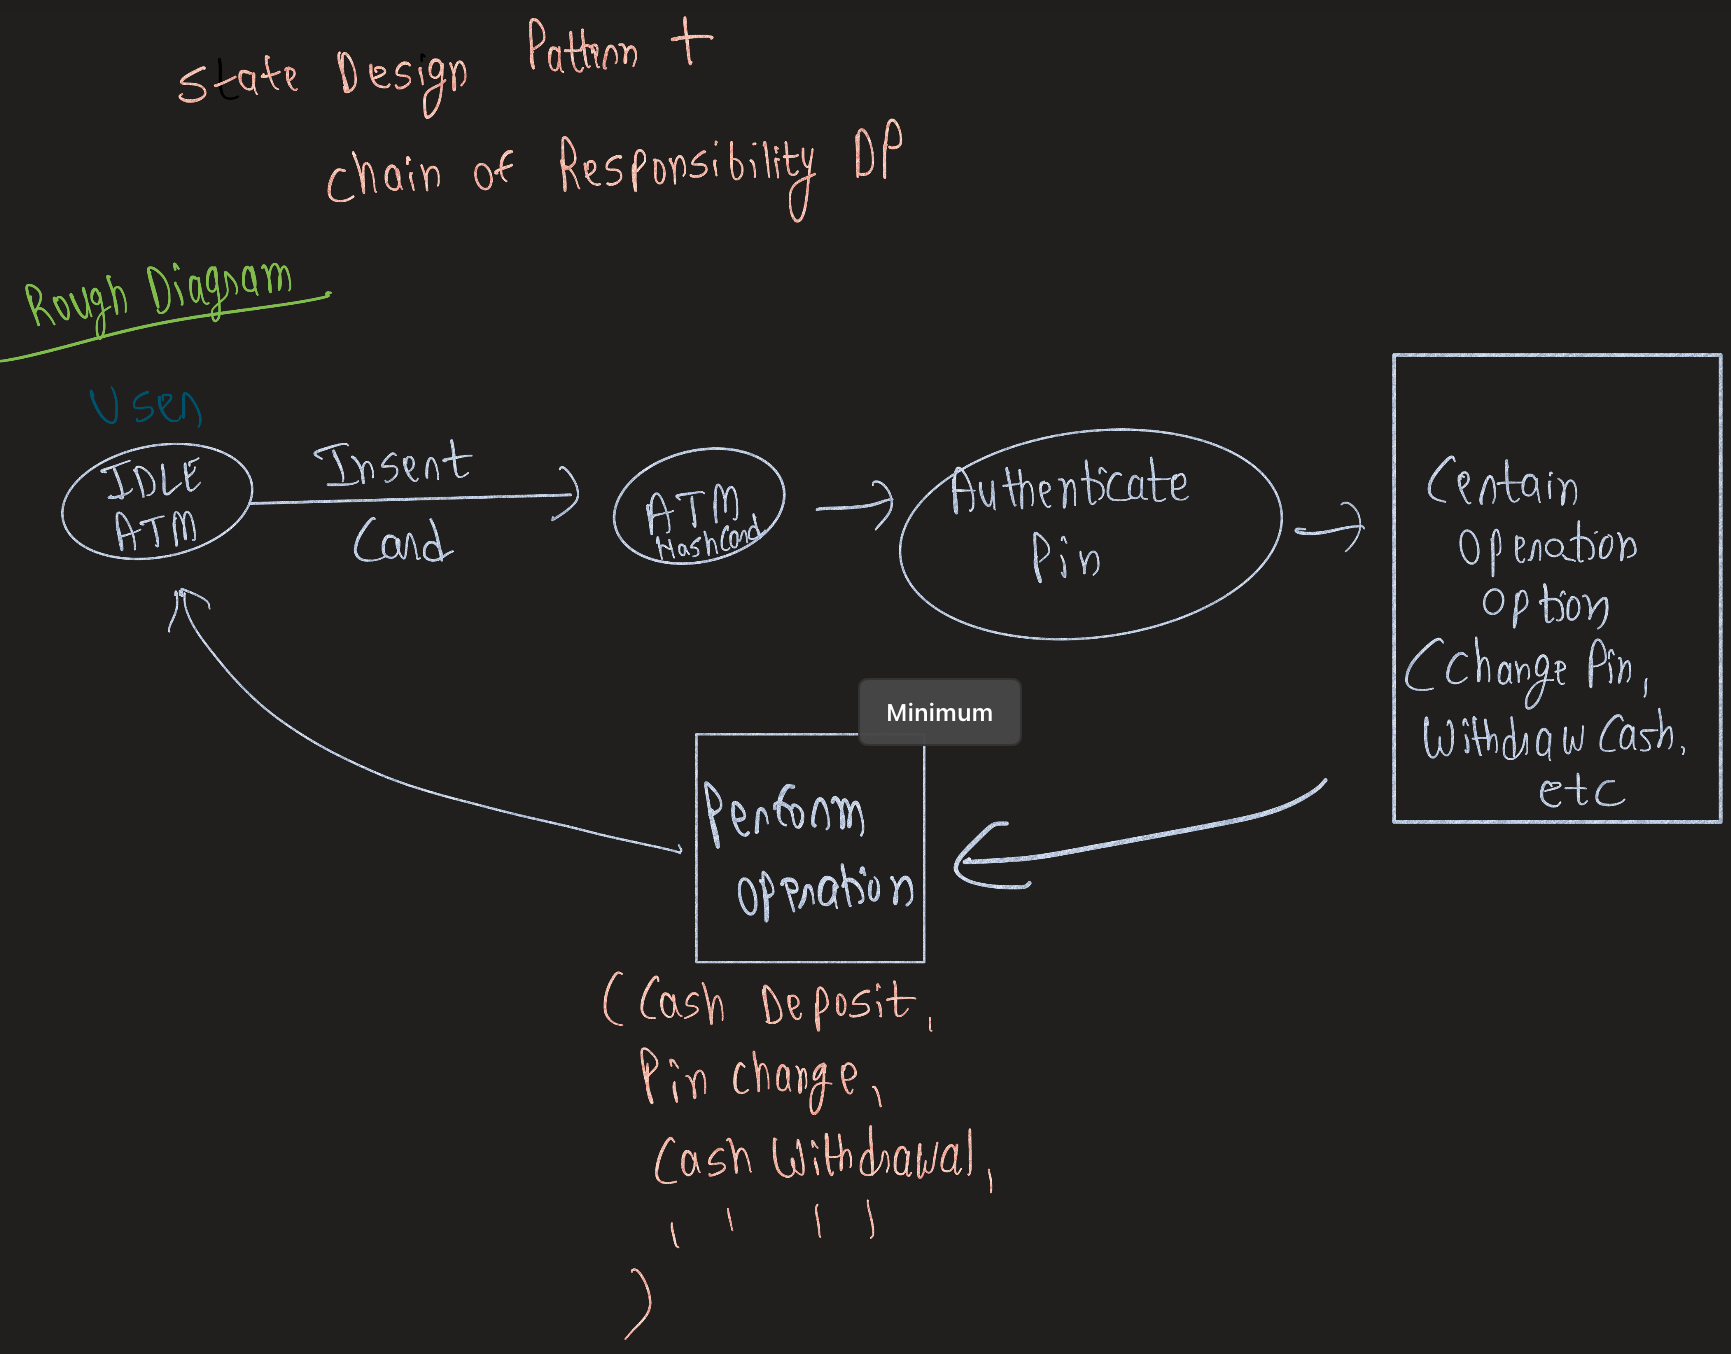 State Design Pattern +
Chain of Responsibility DP
Rough Diagram
User
IDLE
ATM
Insert
Card
ATM
HashCard
Authenticate
Pin
Certain
Operation
Option
(Change Pin,
Withdraw Cash,
etc
Minimum
Perform
Operation
(Cash Deposit,
Pin change,
Cash Withdrawal,
, , , ,
)